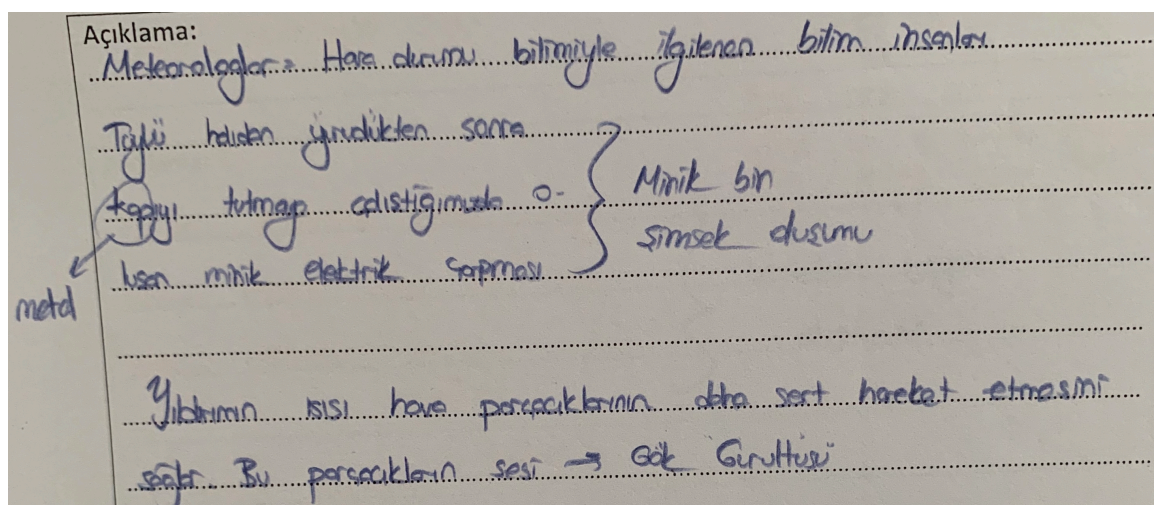 Açıklama:
Meteorologlar = Hava durumu bilimiyle ilgilenen bilim insanları
Tüylü halıdan yürüdükten sonra
kapıyı tutmaya çalıştığımızda o-
luşan minik elektrik çarpması
Minik bir
şimşek oluşumu
metal
Yıldırımın ısısı hava parçacıklarının daha sert hareket etmesini
sağlar. Bu parçacıkların sesi → Gök Gürültüsü